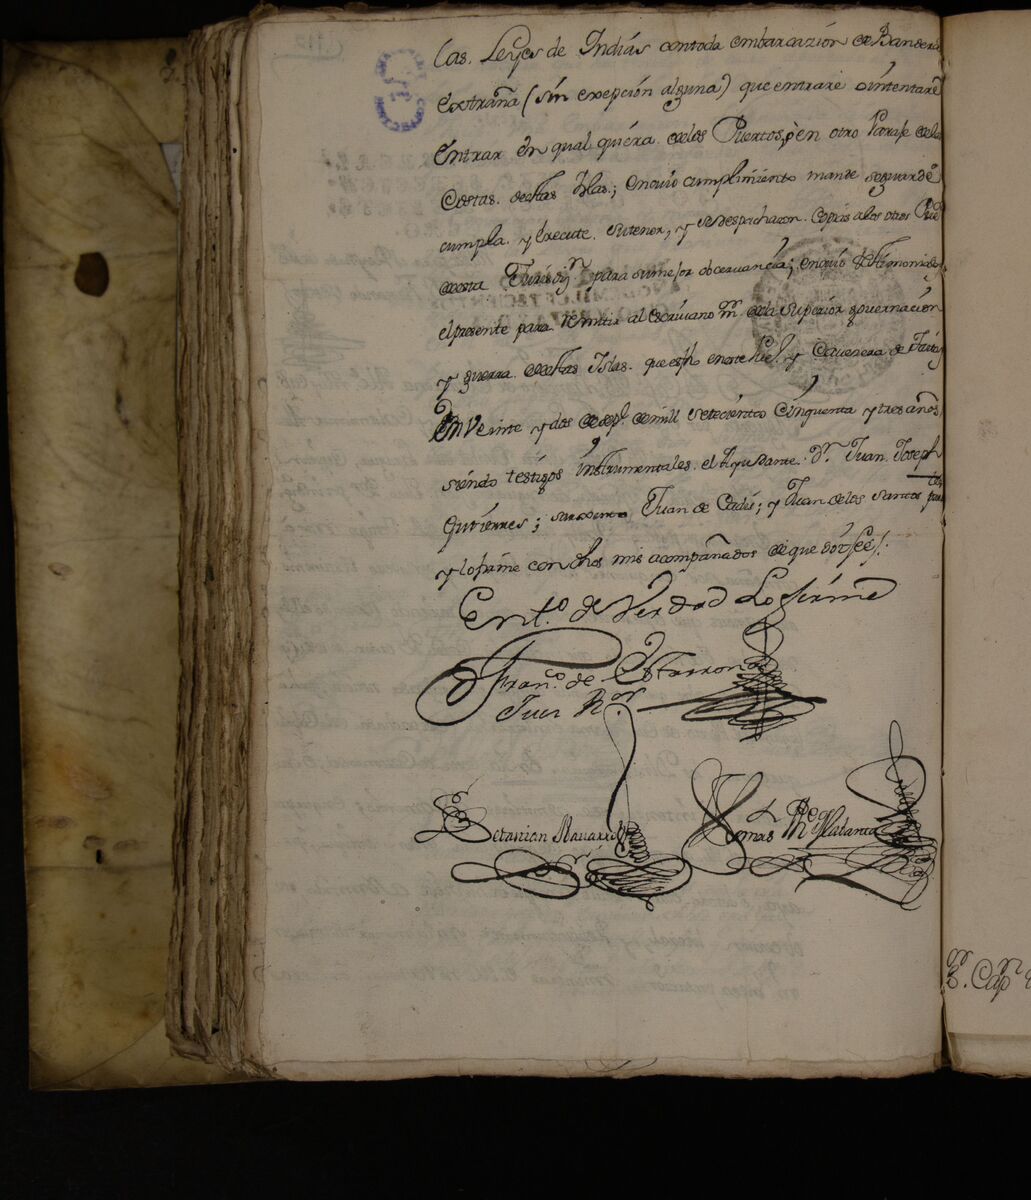 las Leyes de Indias contoda embarcazión de Bandera
extraña (sin exepción alguna) que entrare ointentare
Entrar en qual quiéra delos Puertos, ò en otro Paraje delas
Costas destas Yslas; encuio cumplimiento mande seguarde
cumpla y execute sutenor, y sedespachazon Copias alos otros
desta Jurisdijn para sumejor obceruancia; encuio testimonio
elpresente para remitir al escriuano mr dela superior governación
y guerra destas Islas que esfho eneste y Cauesera de
En Veinte y dos de sepe de mill setecientos cinquenta y tres años
siéndo testigos instrumentales el Ayudante Dn Juan Joseph
Gutiérres; Juan de y Juan delos Santos
y lofirme con dhos mis acompañados de que dòi feè.
En to de Verdad Lo firmè
Franco de Estorrona
Juez Ror
Sebastian Nauarro
Thomas de
Sr. Capn